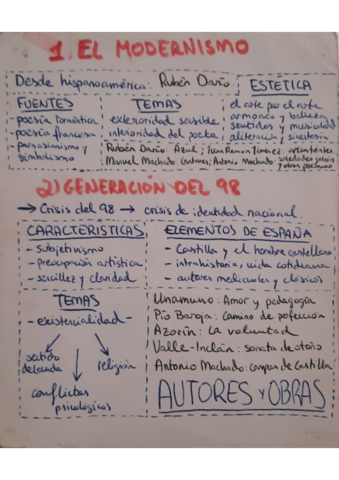 1. EL MODERNISMO
Desde hispanoamérica: Rubén Darío
FUENTES
- poesía romántica
- poesía francesa
- parnasianismo y
simbolismo
TEMAS
exterioridad sensible
interioridad del poeta
ESTETICA
el arte por el arte
armonía y belleza
sentidos y musicalidad
aliteración y sinestesia
Rubén Darío Azul; Juan Ramón Jiménez:
Manuel Machado Cantares; Antonio Machado: soledades galerías
y otros poemas
2) GENERACIÓN DEL 98
→ Crisis del 98 → crisis de identidad nacional.
CARACTERISTICAS
- subjetivismo
- preocupación artística
- sencillez y claridad
ELEMENTOS DE ESPAÑA
- Castilla y el hombre castellano
- intrahistoria, vida cotidiana
- autores medievales y clásicos
TEMAS
- existencialidad -
sentido
de la vida
conflictos
psicológicos
religión
Unamuno: Amor y pedagogía
Pío Baroja: camino de perfección
Azorín: La voluntad
Valle-Inclán: sonata de otoño
Antonio Machado: campos de Castilla
AUTORES Y OBRAS